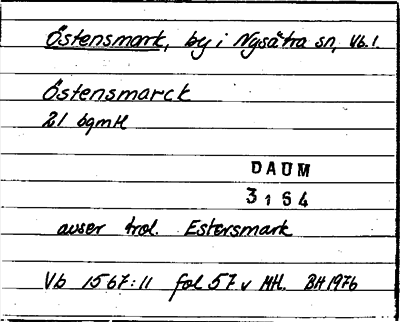 Östensmark, by i Nysätra sn, Vb. l.
Östensmarck
21 bgmH
DAUM
3164
avser trol. Estersmark
Vb 1567:11 fol 57 v MH. BH 1976